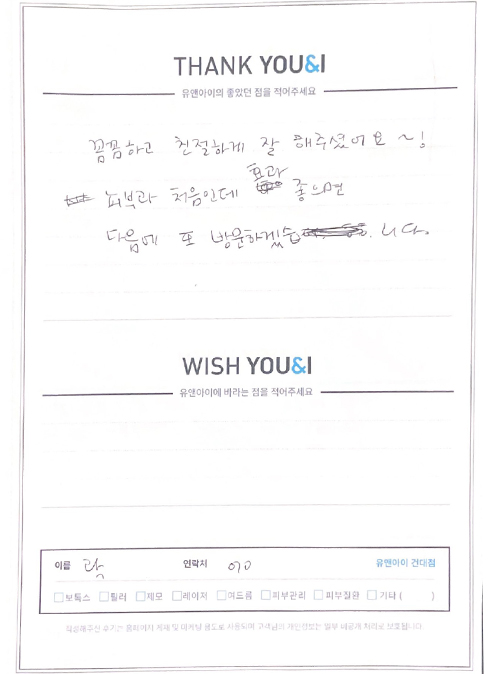 THANK YOU&I
유앤아이의 좋았던 점을 적어주세요
꼼꼼하고 친절하게 잘 해주셨어요 ~!
피부과 처음인데 효과 좋으면
다음에 또 방문하겠습니다.
WISH YOU&I
유앤아이에 바라는 점을 적어주세요
이름 곽 연락처 010 유앤아이 건대점
보톡스 필러 제모 레이저 여드름 피부관리 피부질환 기타 ( )
작성해주신 후기는 홈페이지 게재 및 마케팅 용도로 사용되며 고객님의 개인정보는 일부 비공개 처리로 보호됩니다.